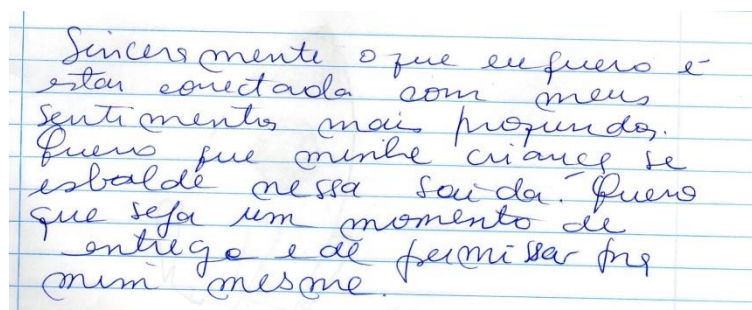 Sinceramente o que eu quero é
estar conectada com meus
sentimentos mais profundos.
Quero que minha criança se
esbalde nessa saída. Quero
que seja um momento de
entrega e de permissão pra
mim mesma.